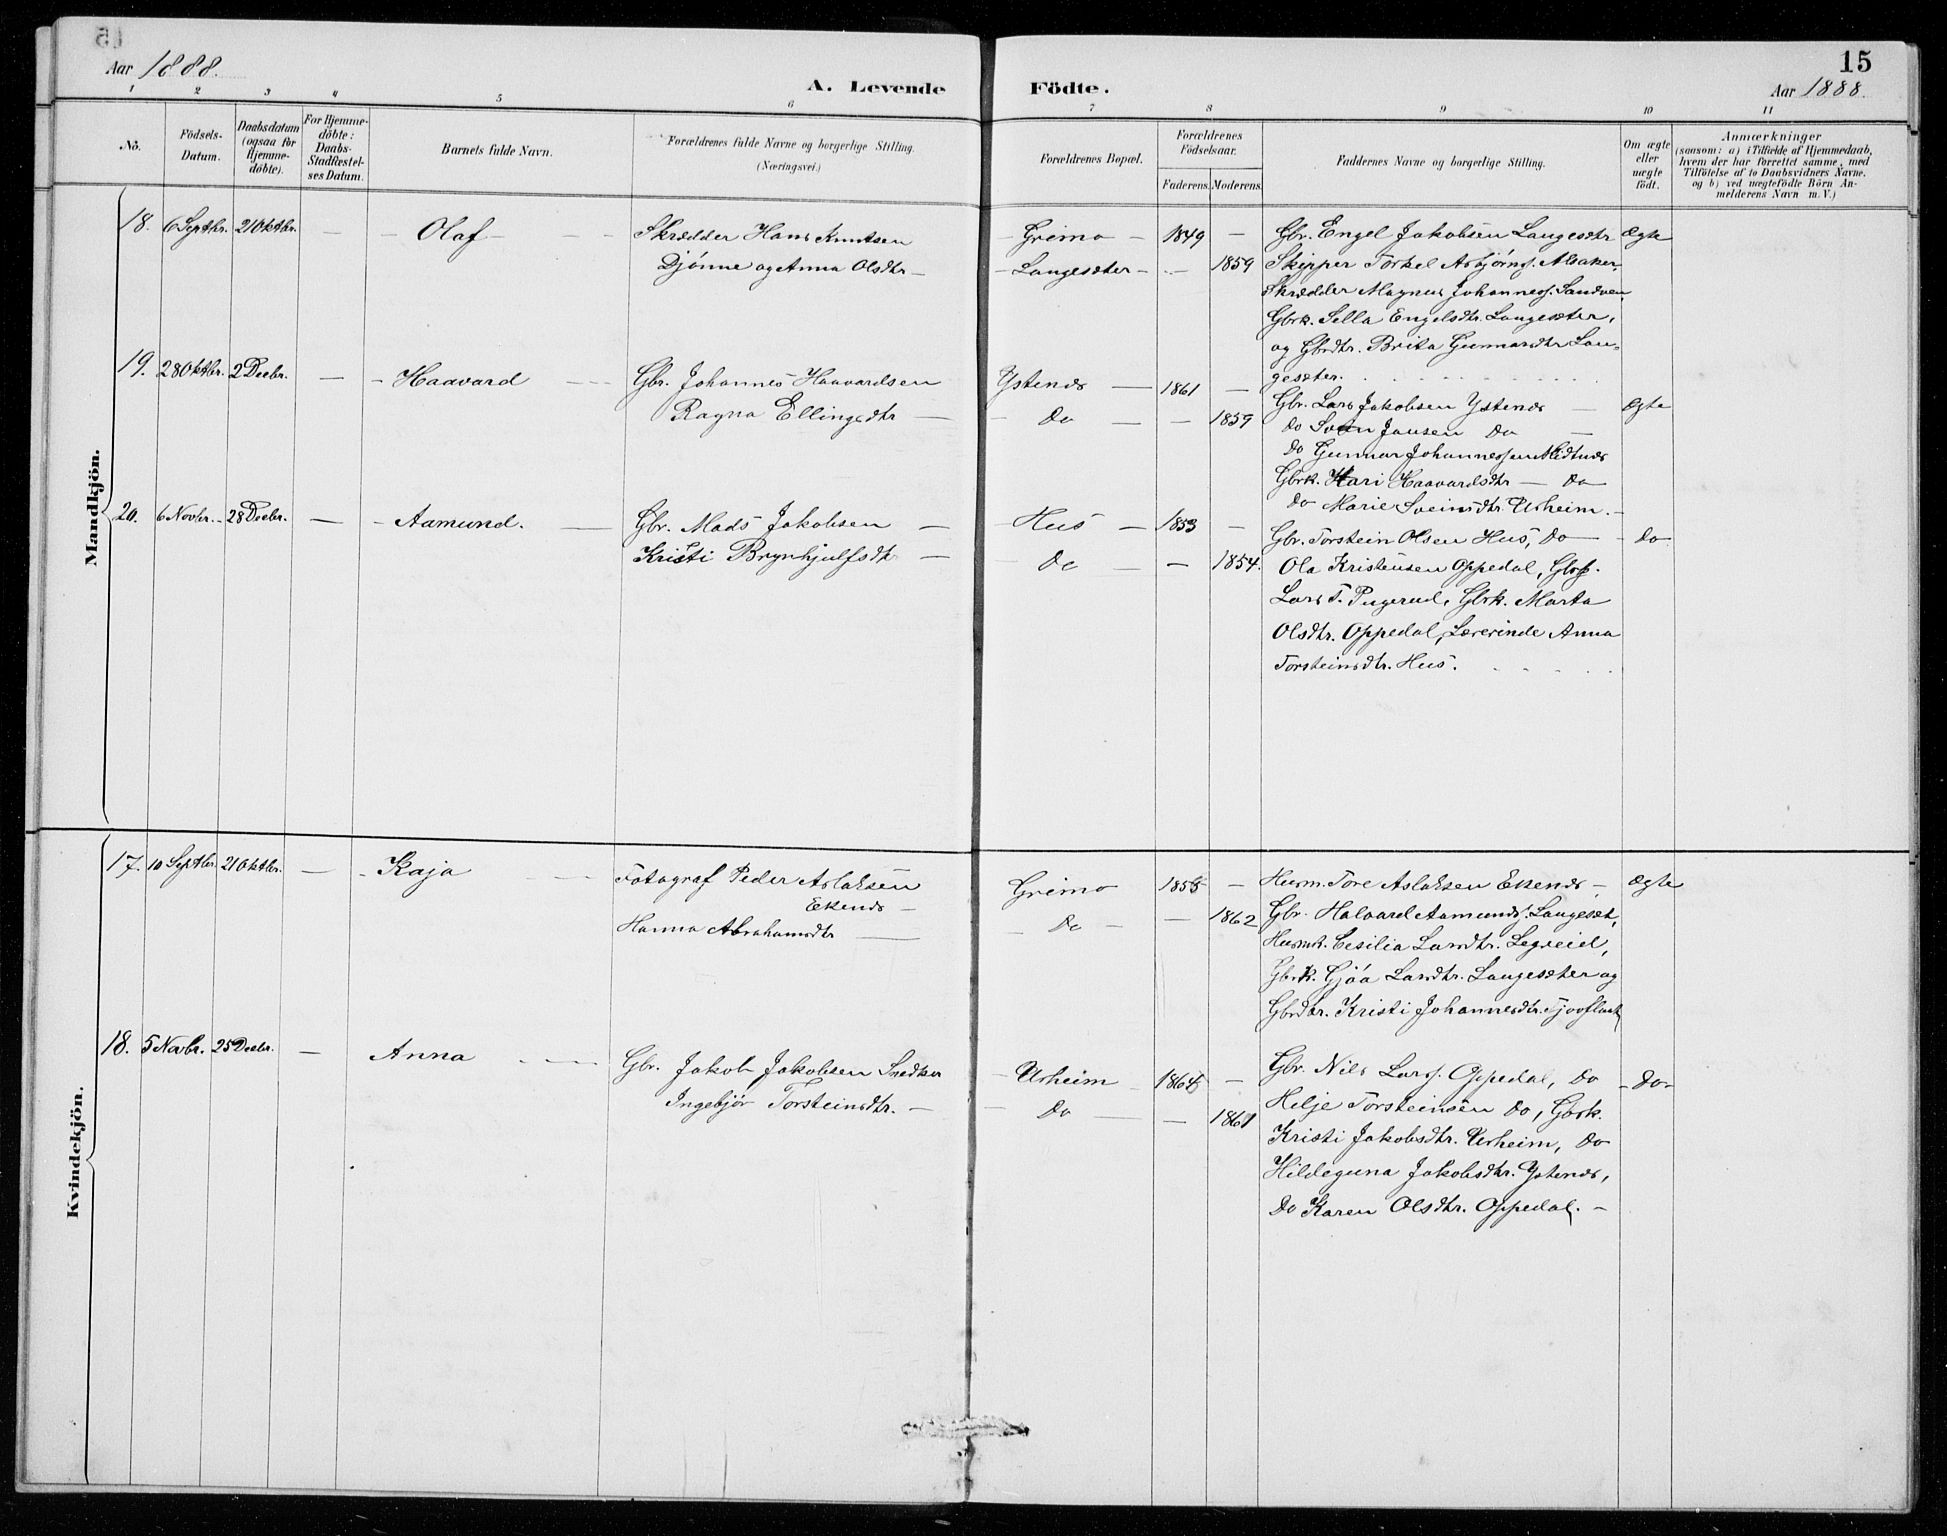 15
Aar 1888. A. Levende Födte. Aar 1888.
1 2 3 4 5 6 7 8 9 10 11
No. Födsels-Datum. Daabsdatum (ogsaa for Hjemme-döbte). For Hjemme-döbte: Daabs-Stadfæstel-ses Datum. Barnets fulde Navn. Forældrenes fulde Navne og borgerlige Stilling. (Næringsvei.) Forældrenes Bopæl. Forældrenes Födselsaar. Faderens. Moderens. Faddernes Navne og borgerlige Stilling. Om ægte eller uægte födt. Anmærkninger (saasom: a) i Tilfælde af Hjemmedaab, hvem der har forrettet samme, med Tilföielse af to Daabsvidners Navne, og b) ved uægtefödte Börn An-melderens Navn m. V.)
Mandkjön.
18. 6 Septbr. 21 Oktbr. — Olaf — Skrædder Hans Knutsen — Grimo — 1849 — Gbr. Engel Jakobsen Langesætr Ægte
Djönne og Anna Olsdtr — Langesæter — 1859 Skipper Torkel Asbjörns. Alsaker,
Skrædder Magnus Johanness. Sandven
Gbrk. Sella Engelsdtr. Langesæter,
og Gbrdtr. Brita Gunnarsdtr Lan-
gesæter.
19. 28 Oktbr. 2 Decbr. — Haavard — Gbr. Johannes Haavardsen Ystenes — 1861 — Gbr. Lars Jakobsen Ystenes — Ægte
Ragna Ellingsdtr — Do — 1859 Do Svein Jansen Do —
Do Gunnar Johannessen Midtnes
Gbrk. Kari Haavardsdtr — Do
Do Marie Sveinsdtr Urheim. —
20. 6 Novbr. 28 Decbr. — Aamund. — Gbr. Mads Jakobsen — Hus — 1853 — Gbr. Torstein Olsen Hus, Do — Do
Kristi Brynhjulfsdtr — Do — 1854. Ola Kristensen Oppedal, Gbrs.
Lars T. Pugerud, Gbrk. Marta
Olsdtr. Oppedal, Lærerinde Anna
Torsteinsdtr. Hus.
Kvindekjön.
17. 10 Septbr. 21 Oktbr. — Kaja — Fotograf Peder Aslaksen Grimo 1855 — Husm. Tore Aslaksen Ekenes — Ægte
Ekenes —
Hanna Abrahamsdtr — Do — 1862 Gbr. Halvard Aamunds. Langesæt,
Husmk. Cesilia Larsdtr. Legreid,
Gbrk. Gjöa Larsdtr. Langesæter og
Gbrdtr. Kristi Johannesdtr. Tjovflaat
18. 5 Novbr. 25 Decbr. — Anna — Gbr. Jakob Jakobsen Snedker — Urheim — 1864 — Gbr. Nils Larss. Oppedal, Do — Do —
Ingebjör Torsteinsdtr. — Do — 1861 Helje Torsteinsen Do, Gbrk.
Kristi Jakobsdtr. Urheim, Do
Hildeguna Jakobsdtr. Ystenes,
Do Karen Olsdtr. Oppedal. —